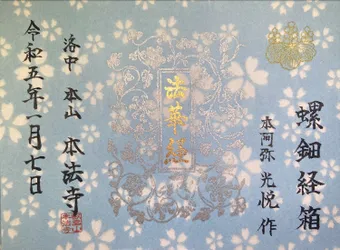 螺鈿経箱
本阿弥 光悦 作
法華経
洛中 本山 本法寺
令和五年一月七日